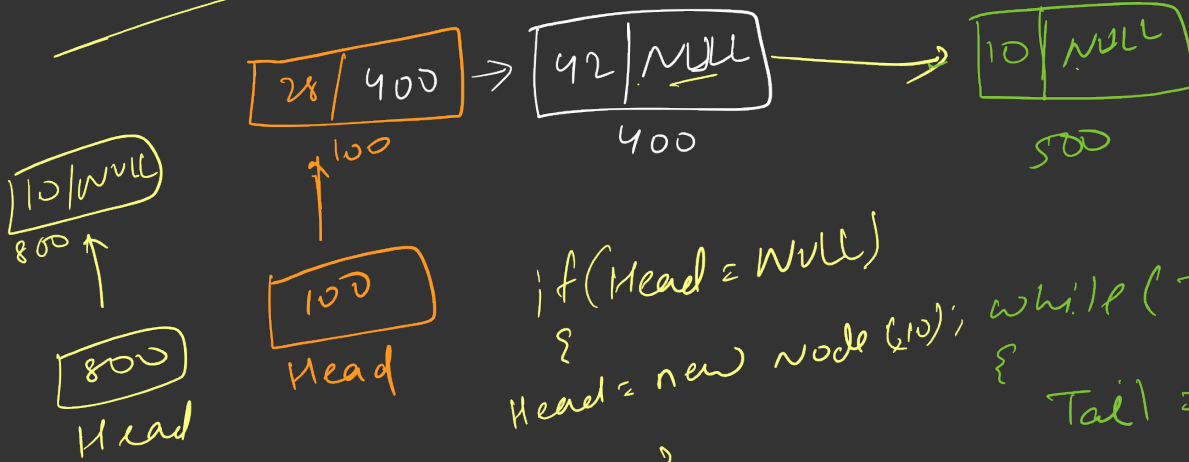 28 | 400
42 | NULL
10 | NULL
100
400
500
10 | NULL
800
800
Head
100
Head
if(Head = NULL)
{
Head = new Node(10);
}
while(
{
Tail =